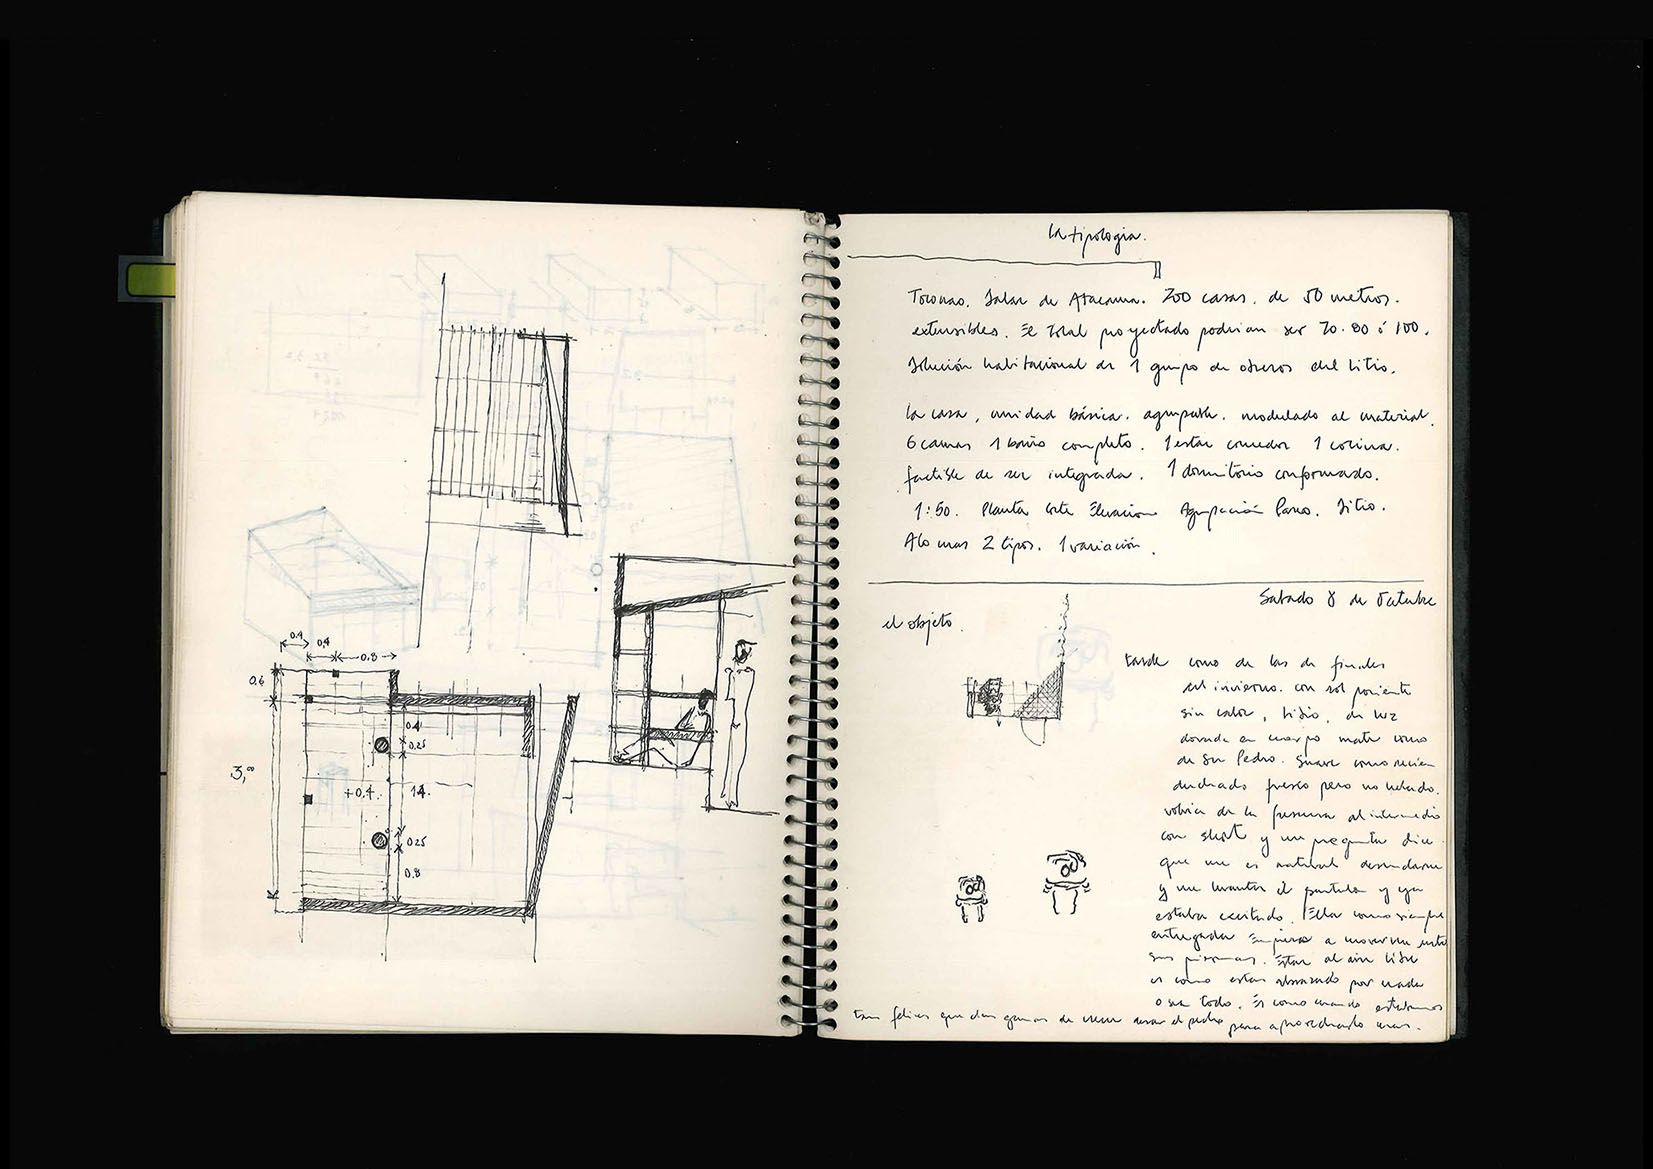 0.4
0.4
0.8
0.6
0.4
0.25
3,00
+0.4.
14.
025
0.8
la tipologia.
Toconao. Salar de Atacama. 200 casas. de 50 metros.
extensibles. El total proyectado podrian ser 70. 80 ó 100.
Solución habitacional de 1 grupo de obreros del litio.
la casa, unidad básica. agrupable. modulado al material.
6 camas 1 baño completo. 1 estar comedor 1 cocina.
factible de ser integrada. 1 dormitorio conformado.
1:50. Planta Corte Elevacion Agrupación Sitio.
A lo mas 2 tipos. 1 variación.
Sabado 8 de Octubre
el objeto.
tarde como de las de finales
del invierno. con sol poniente
sin calor, tibio, de luz
dorada en cuerpo mate como
de San Pedro. Suave como recien
duchado fresco pero no helado.
volvia de la al intermedio
con short y me pregunta dice
que me es natural
y me levanta el y ya
estaba excitado. Ella como siempre
entregada Empieza a moverme entre
sus piernas. Estar al aire libre
es como estar abrazado por nada
o sea todo. Es como cuando estabamos
tan felices que dan ganas de el pecho para aprovecharlo mas.